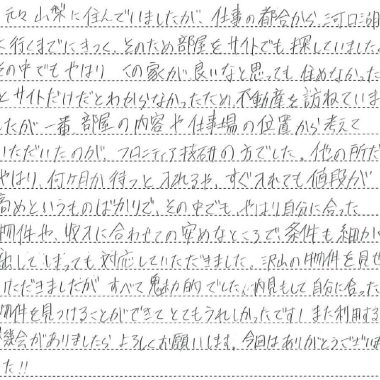 元々山梨に住んでいましたが、仕事の都合から河口湖
に行くまでにきつく、そのため部屋をサイトでも探していました。
その中でもやはり、この家が良いなと思っても、住めなかった
とサイトだけだとわからなかったため、不動産を訪ねていま
したが一番部屋の内容や仕事場の位置から考えて
いただいたのが、フロンティア技研の方でした。他の所だ
やはり、何ヶ月か待つと入れるや、すぐ入れても値段が
高めというものばかりで、その中でも、やはり自分に合った
物件や、収入に合わせての安めなところで、条件も細かく
出してしまっても対応していただきました。沢山の物件を見せ
いただきましたが すべて魅力的でした。内見もして自分に合った
物件を見つけることができてとてもうれしかったです!また利用する
機会がありましたらよろしくお願いします。今回はありがとうござい
た!!